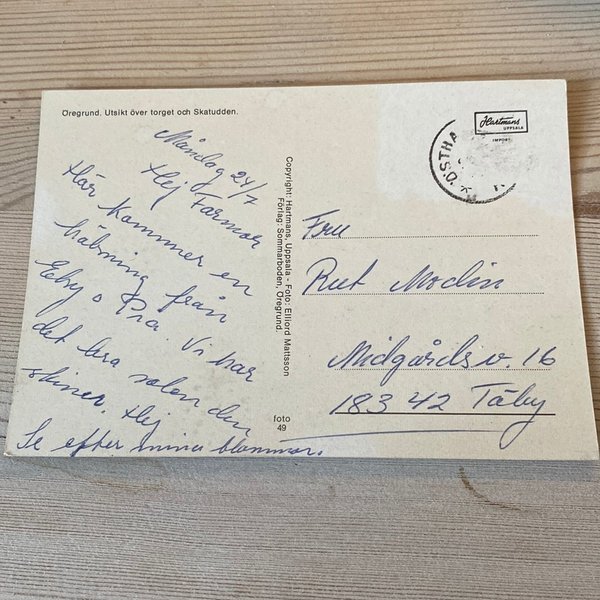 Öregrund. Utsikt över torget och Skatudden.
Måndag 24/7
Hej Farmor
Här kommer en
hälsning från
Eby o Pia. Vi har
det bra solen den
skiner. Hej
Se efter mina blommor.
Copyright: Hartmans, Uppsala - Foto: Elliord Mattsson
Förlag: Sommarboden, Öregrund.
foto
49
Hartmans
UPPSALA
IMPORT
ÖSTHA
Fru
Rut Modin
Midgårdsv. 16
183 42 Täby